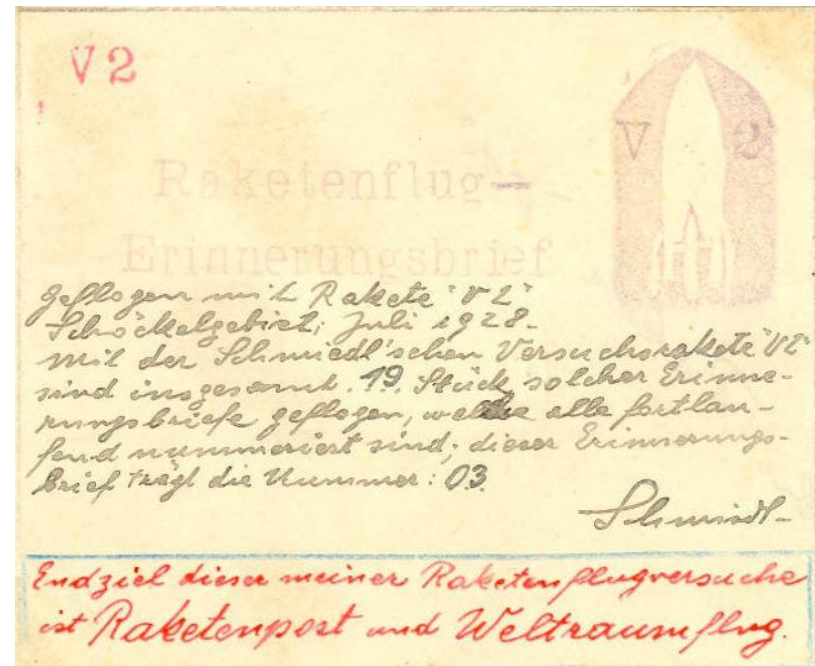 V 2
V 2
Raketenflug-
Erinnerungsbrief
geflogen mit Rakete "V2"
Schöckelgebiet; Juli 1928.
Mit der Schmiedl'schen Versuchsrakete "V2"
sind insgesamt 19. Stück solcher Erinne-
rungsbriefe geflogen, welche alle fortlau-
fend nummeriert sind; dieser Erinnerungs-
brief trägt die Nummer: 03.
Schmiedl-
Endziel dieser meiner Raketenflugversuche
ist Raketenpost und Weltraumflug.